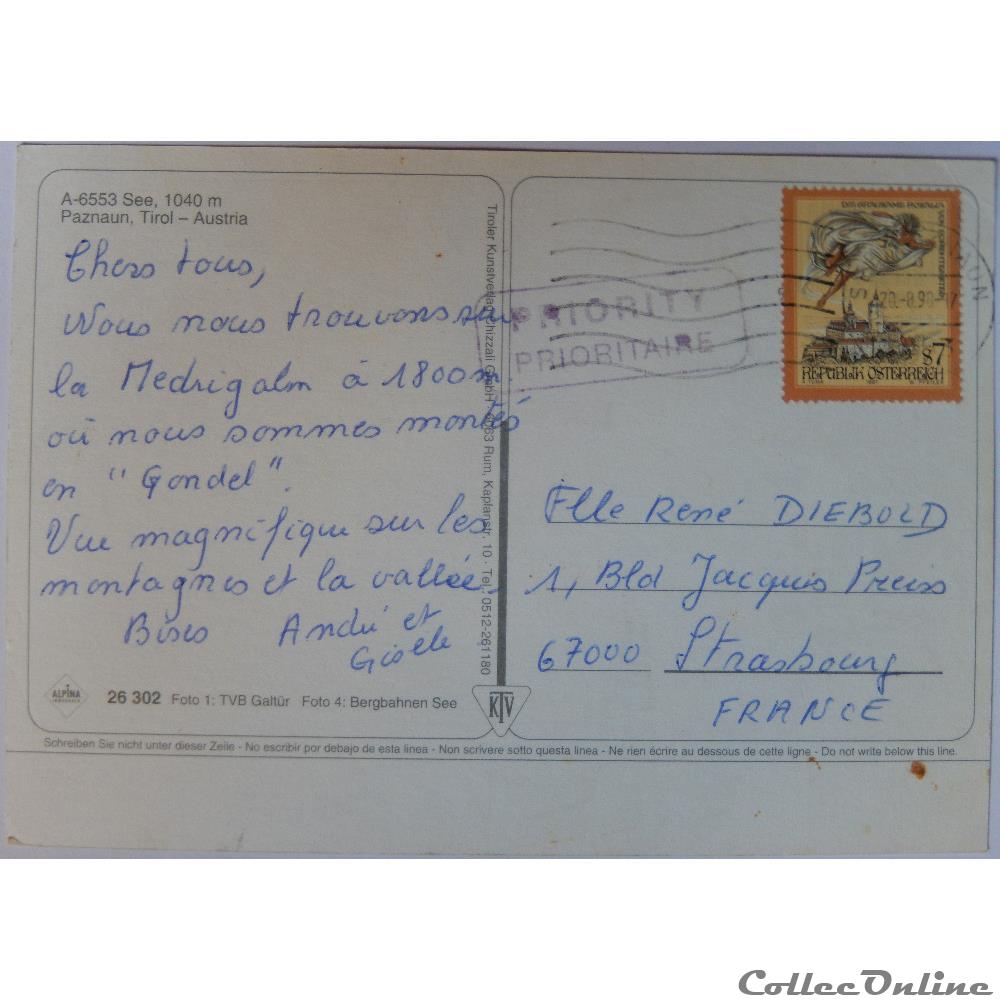 A-6553 See, 1040 m
Paznaun, Tirol – Austria
Chers tous,
Nous nous trouvons sur
la Medrigalm à 1800m
où nous sommes montés
en "Gondel".
Vue magnifique sur les
montagnes et la vallée.
Bises André et
Gisèle
ALPINA
26 302 Foto 1: TVB Galtür Foto 4: Bergbahnen See
Tiroler Kunstverlag Chizzali GmbH, 6063 Rum, Kaplanstr. 10 · Tel. 0512-261180
KTV
PRIORITY
PRIORITAIRE
DIE GRAUSAME ROSALIA
S7
REPUBLIK ÖSTERREICH
Flle René DIEBOLD
1, Bld Jacques Preiss
67000 Strasbourg
FRANCE
Schreiben Sie nicht unter dieser Zeile - No escribir por debajo de esta linea - Non scrivere sotto questa linea - Ne rien écrire au dessous de cette ligne - Do not write below this line.
CollecOnline